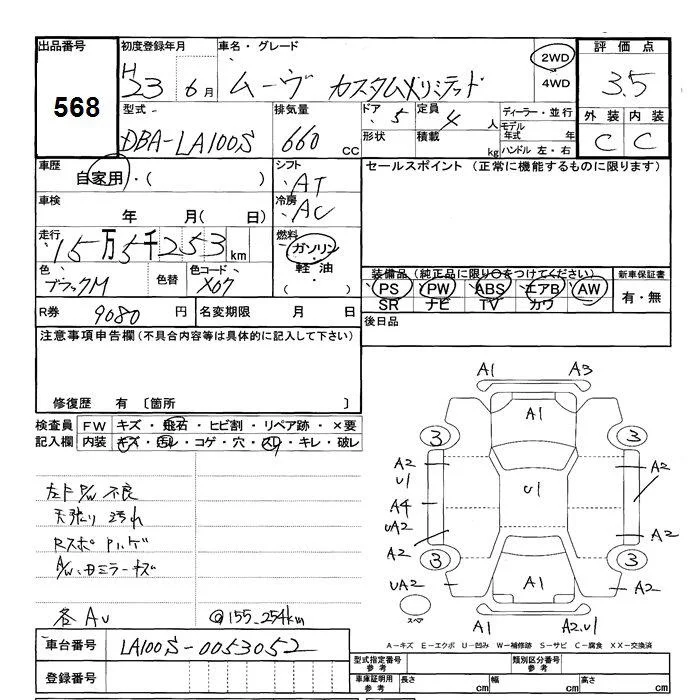 出品番号 初度登録年月 車名・グレード 評価点
568
H23 6月 ムーヴ カスタムXリミテッド 2WD 4WD 3.5
型式 排気量 ドア 5 定員 4 人 ディーラー・並行 外装 内装
DBA-LA100S 660 CC 形状 積載 kg モデル年式 年 C C
ハンドル 左・右
車歴 シフト セールスポイント (正常に機能するものに限ります)
自家用・( ) AT
車検 年 月( 日) 冷房 AC
走行 15万5千253km 燃料 ガソリン・軽油・( )
色 ブラックM 色替 色コード X07
装備品(純正品に限り○をつけてください) 新車保証書
PS PW ABS エアB AW 有・無
SR ナビ TV カワ
R券 9080円 名変期限 月 日 後日品
注意事項申告欄(不具合内容等は具体的に記入して下さい)
修復歴 有 〔箇所 〕
検査員 FW キズ・飛石・ヒビ割・リペア跡・×要
記入欄 内装 キズ・汚れ・コゲ・穴・スレ・キレ・破レ
左F P/W 不良
天張り 汚れ
Rスポ Pハゲ
A/W、Dミラーキズ
各AU @155,254km
A1 A3
A1
3 3
A2 A2
U1 U1
A4
UA2 A2
A2
3 3
UA2 A1 A2
スペア
A1 A2.U1
A-キズ E-エクボ U-凹み W-補修跡 S-サビ C-腐食 XX-交換済
車台番号 LA100S-0053052
登録番号
型式指定番号 参考 類別区分番号 参考
車庫証明用 参考 長さ cm 幅 cm 高さ cm